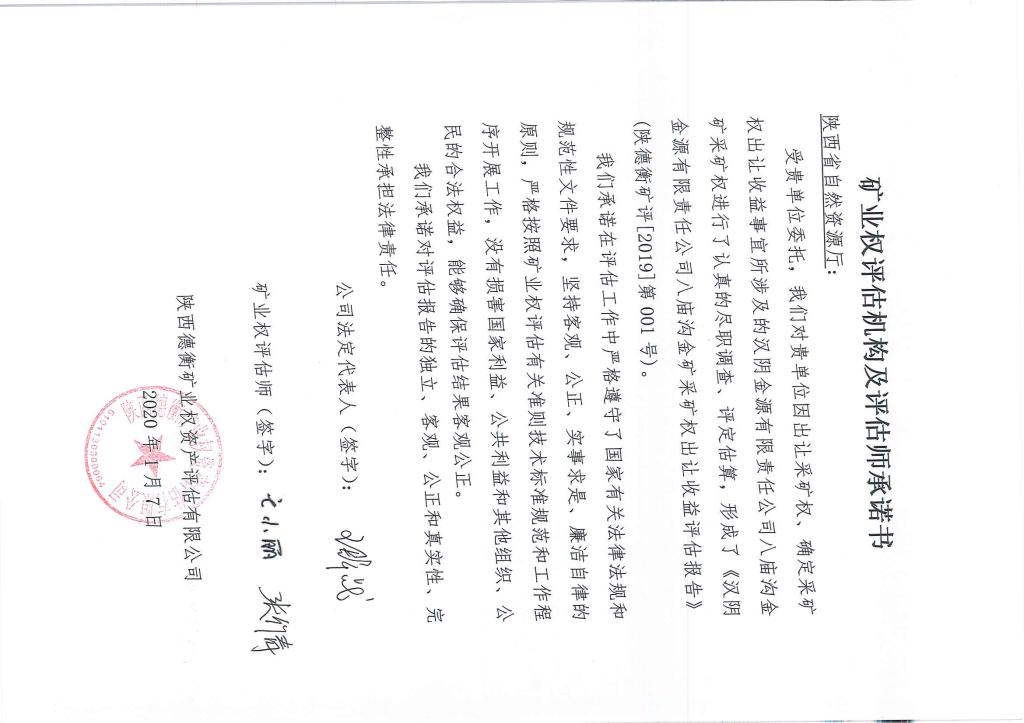 矿业权评估机构及评估师承诺书
陕西省自然资源厅：
受贵单位委托，我们对贵单位因出让采矿权、确定采矿
权出让收益事宜所涉及的汉阴金源有限责任公司八庙沟金
矿采矿权进行了认真的尽职调查、评定估算，形成了《汉阴
金源有限责任公司八庙沟金矿采矿权出让收益评估报告》
(陕德衡矿评[2019]第 001 号)。
我们承诺在评估工作中严格遵守了国家有关法律法规和
规范性文件要求，坚持客观、公正、实事求是、廉洁自律的
原则，严格按照矿业权评估有关准则技术标准规范和工作程
序开展工作，没有损害国家利益、公共利益和其他组织、公
民的合法权益，能够确保评估结果客观公正。
我们承诺对评估报告的独立、客观、公正和真实性、完
整性承担法律责任。
公司法定代表人（签字）：
矿业权评估师（签字）：
陕西德衡矿业权资产评估有限公司
2020 年 1 月 7 日